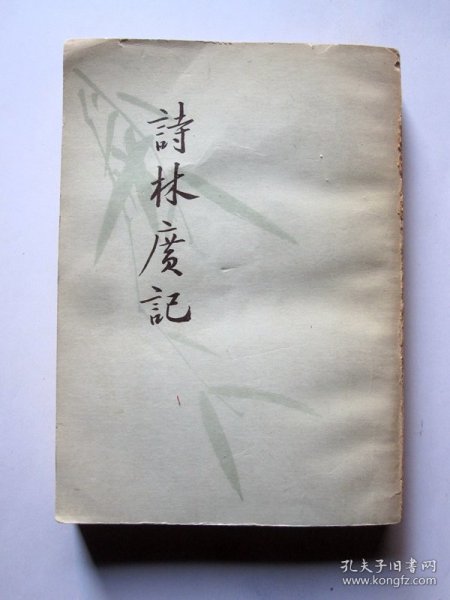 詩林廣記
孔夫子旧书网
www.kongfz.com